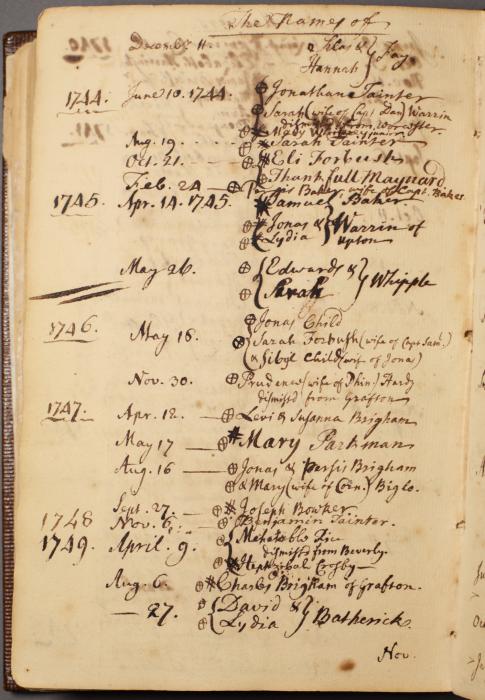 The Names of
Decemb. 11 Silas & } Fay
Hannah
1744. June 10. 1744. Jonathan Tainter
Sarah (wife of Capt Dan) Warrin
dismisst from Worcester
Aug. 19. Sarah Tainter
Oct. 21. Eli Forbush
Thankfull Maynard
Feb. 24 Baker, wife of Capt. Baker
1745. Apr. 14. 1745. Samuel Baker
Jonas & } Warrin of
Lydia } Upton
May 26. Edwards & } Whipple
Sarah
1746. Jonas Child
May 18. Sarah Forbush (wife of Capt Sam.)
& Sibyl Child (wife of Jonas)
Nov. 30. Prudence (wife of Phin.) Hardy
dismisst from Grafton
1747. Apr. 12. Levi & Susanna Brigham
May 17 Mary Parkman
Aug. 16 Jonas & Persis Brigham
& Mary (wife of Corn.) Biglo.
Sept. 27. Joseph Bowker
1748 Nov. 6. Benjamin Tainter.
1749. April. 9. Mehetabel Rice
dismisst from Beverly.
Hephzibah Crosby
Aug. 6. Charles Brigham of Grafton.
27. David & } Batherick.
Lydia
Nov.